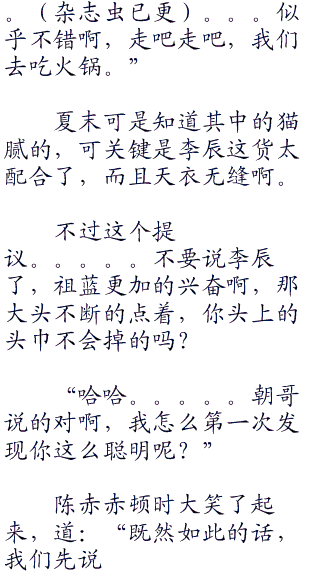 。（杂志虫已更）。。。似
乎不错啊，走吧走吧，我们
去吃火锅。”
夏末可是知道其中的猫
腻的，可关键是李辰这货太
配合了，而且天衣无缝啊。
不过这个提
议。。。。。不要说李辰
了，祖蓝更加的兴奋啊，那
大头不断的点着，你头上的
头巾不会掉的吗？
“哈哈。。。。。朝哥
说的对啊，我怎么第一次发
现你这么聪明呢？”
陈赤赤顿时大笑了起
来，道：“既然如此的话，
我们先说